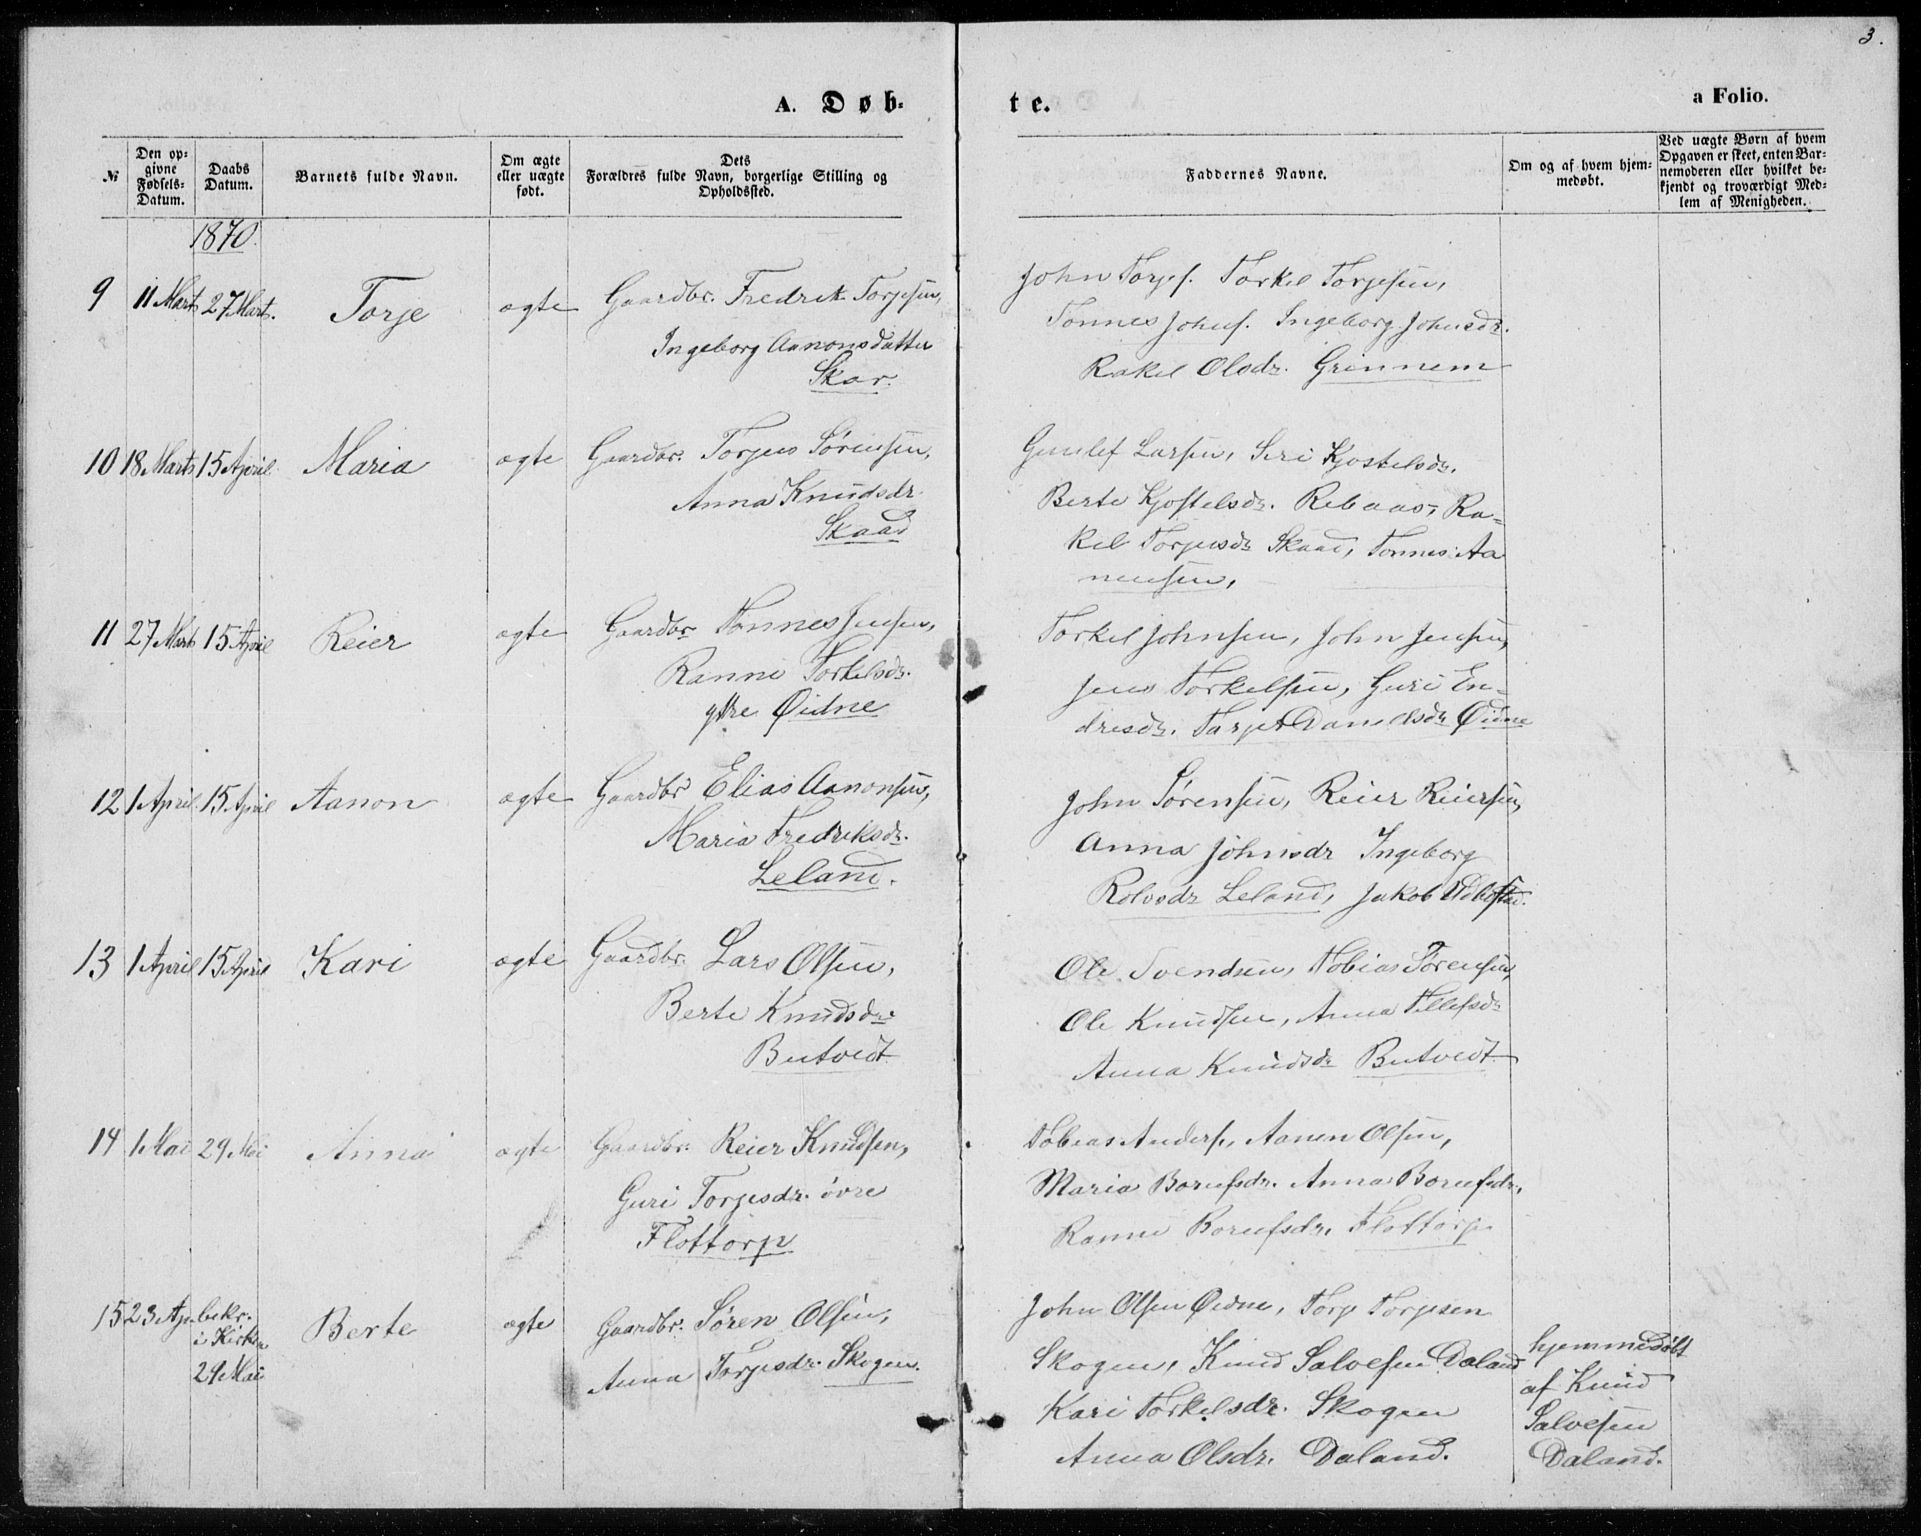 3.
A. Døb-
te.
a Folio.
№
Den op-
givne
Fødsels-
Datum.
Daabs
Datum.
Barnets fulde Navn.
Om ægte
eller uægte
født.
Dets
Forældres fulde Navn, borgerlige Stilling og
Opholdssted.
Faddernes Navne.
Om og af hvem hjem-
medøbt.
Ved uægte Børn af hvem
Opgaven er skeet, enten Bar-
nemoderen eller hvilket be-
kjendt og troværdigt Med-
lem af Menigheden.
1870.
9 11 Marts 27 Mart. Torje ægte Gaardbr. Fredrik Torjesen,
Ingeborg Aanonsdatter
Skar.
John Torjes. Torkel Torjesen,
Tønnes Johns. Ingeborg Johnsdr.
Rakel Olsdr. Grinnem
10 18 Marts 15 April Maria ægte Gaardbr. Torjus Sørensen,
Anna Knudsdr
Skaad
Gunlef Larsen, Siri Kjostelsdr.
Berte Kjostelsdr. Rebaas, Ra-
kel Torjusdr Skaad, Tønnes Aa
nensen,
11 27 Marts 15 April Reier ægte Gaardbr Tønnes Jensen,
Ranni Torkelsdr.
ytre Øidne
Torkel Johnsen, John Jensen,
Jens Torkelsen, Guri En-
dresdr. Tarjer Danielsdr Øidne
12 1 April 15 April Aanon ægte Gaardbr Elias Aanonsen,
Maria Fredriksdr.
Leland.
John Sørensen, Reier Reiersen,
Anna Johnsdr Ingeborg
Rolvsdr Leland, Jakob
13 1 April 15 April Kari ægte Gaardbr. Lars Olsen,
Berte Knudsdr.
Butvedt
Ole Svendsen, Tobias Sørensen,
Ole Knudsen, Anna Tellefsdr
Anna Knudsdr Butvedt
14 1 Mai 29 Mai Anna ægte Gaardbr. Reier Knudsen,
Guri Torjesdr. øvre
Flottorp
Tobias Anders., Aanen Olsen,
Maria Borufsdr. Anna Borufsdr.
Ranni Borufsdr. Flottorp
15 23 Ap. bekr.
i Kirken
29 Mai
Berte ægte Gaardbr. Søren Olsen,
Anna Torjesdr. Skogen.
John Olsen Øidne, Torje Torjesen
Skogen, Knud Salvesen Daland
Kari Torkelsdr. Skogen
Anna Olsdr. Daland.
hjemmedøbt
af Knud
Salvesen
Daland.